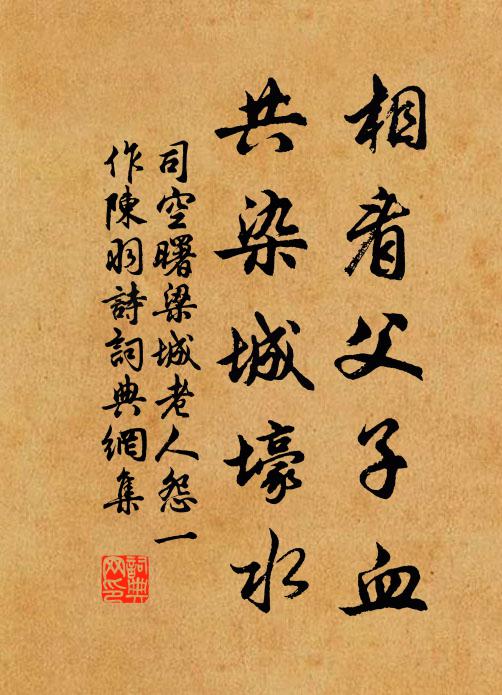 相看父子血
共染城壕水
司空曙梁城老人怨一
作陳羽詩詞典網集
詞典
网印